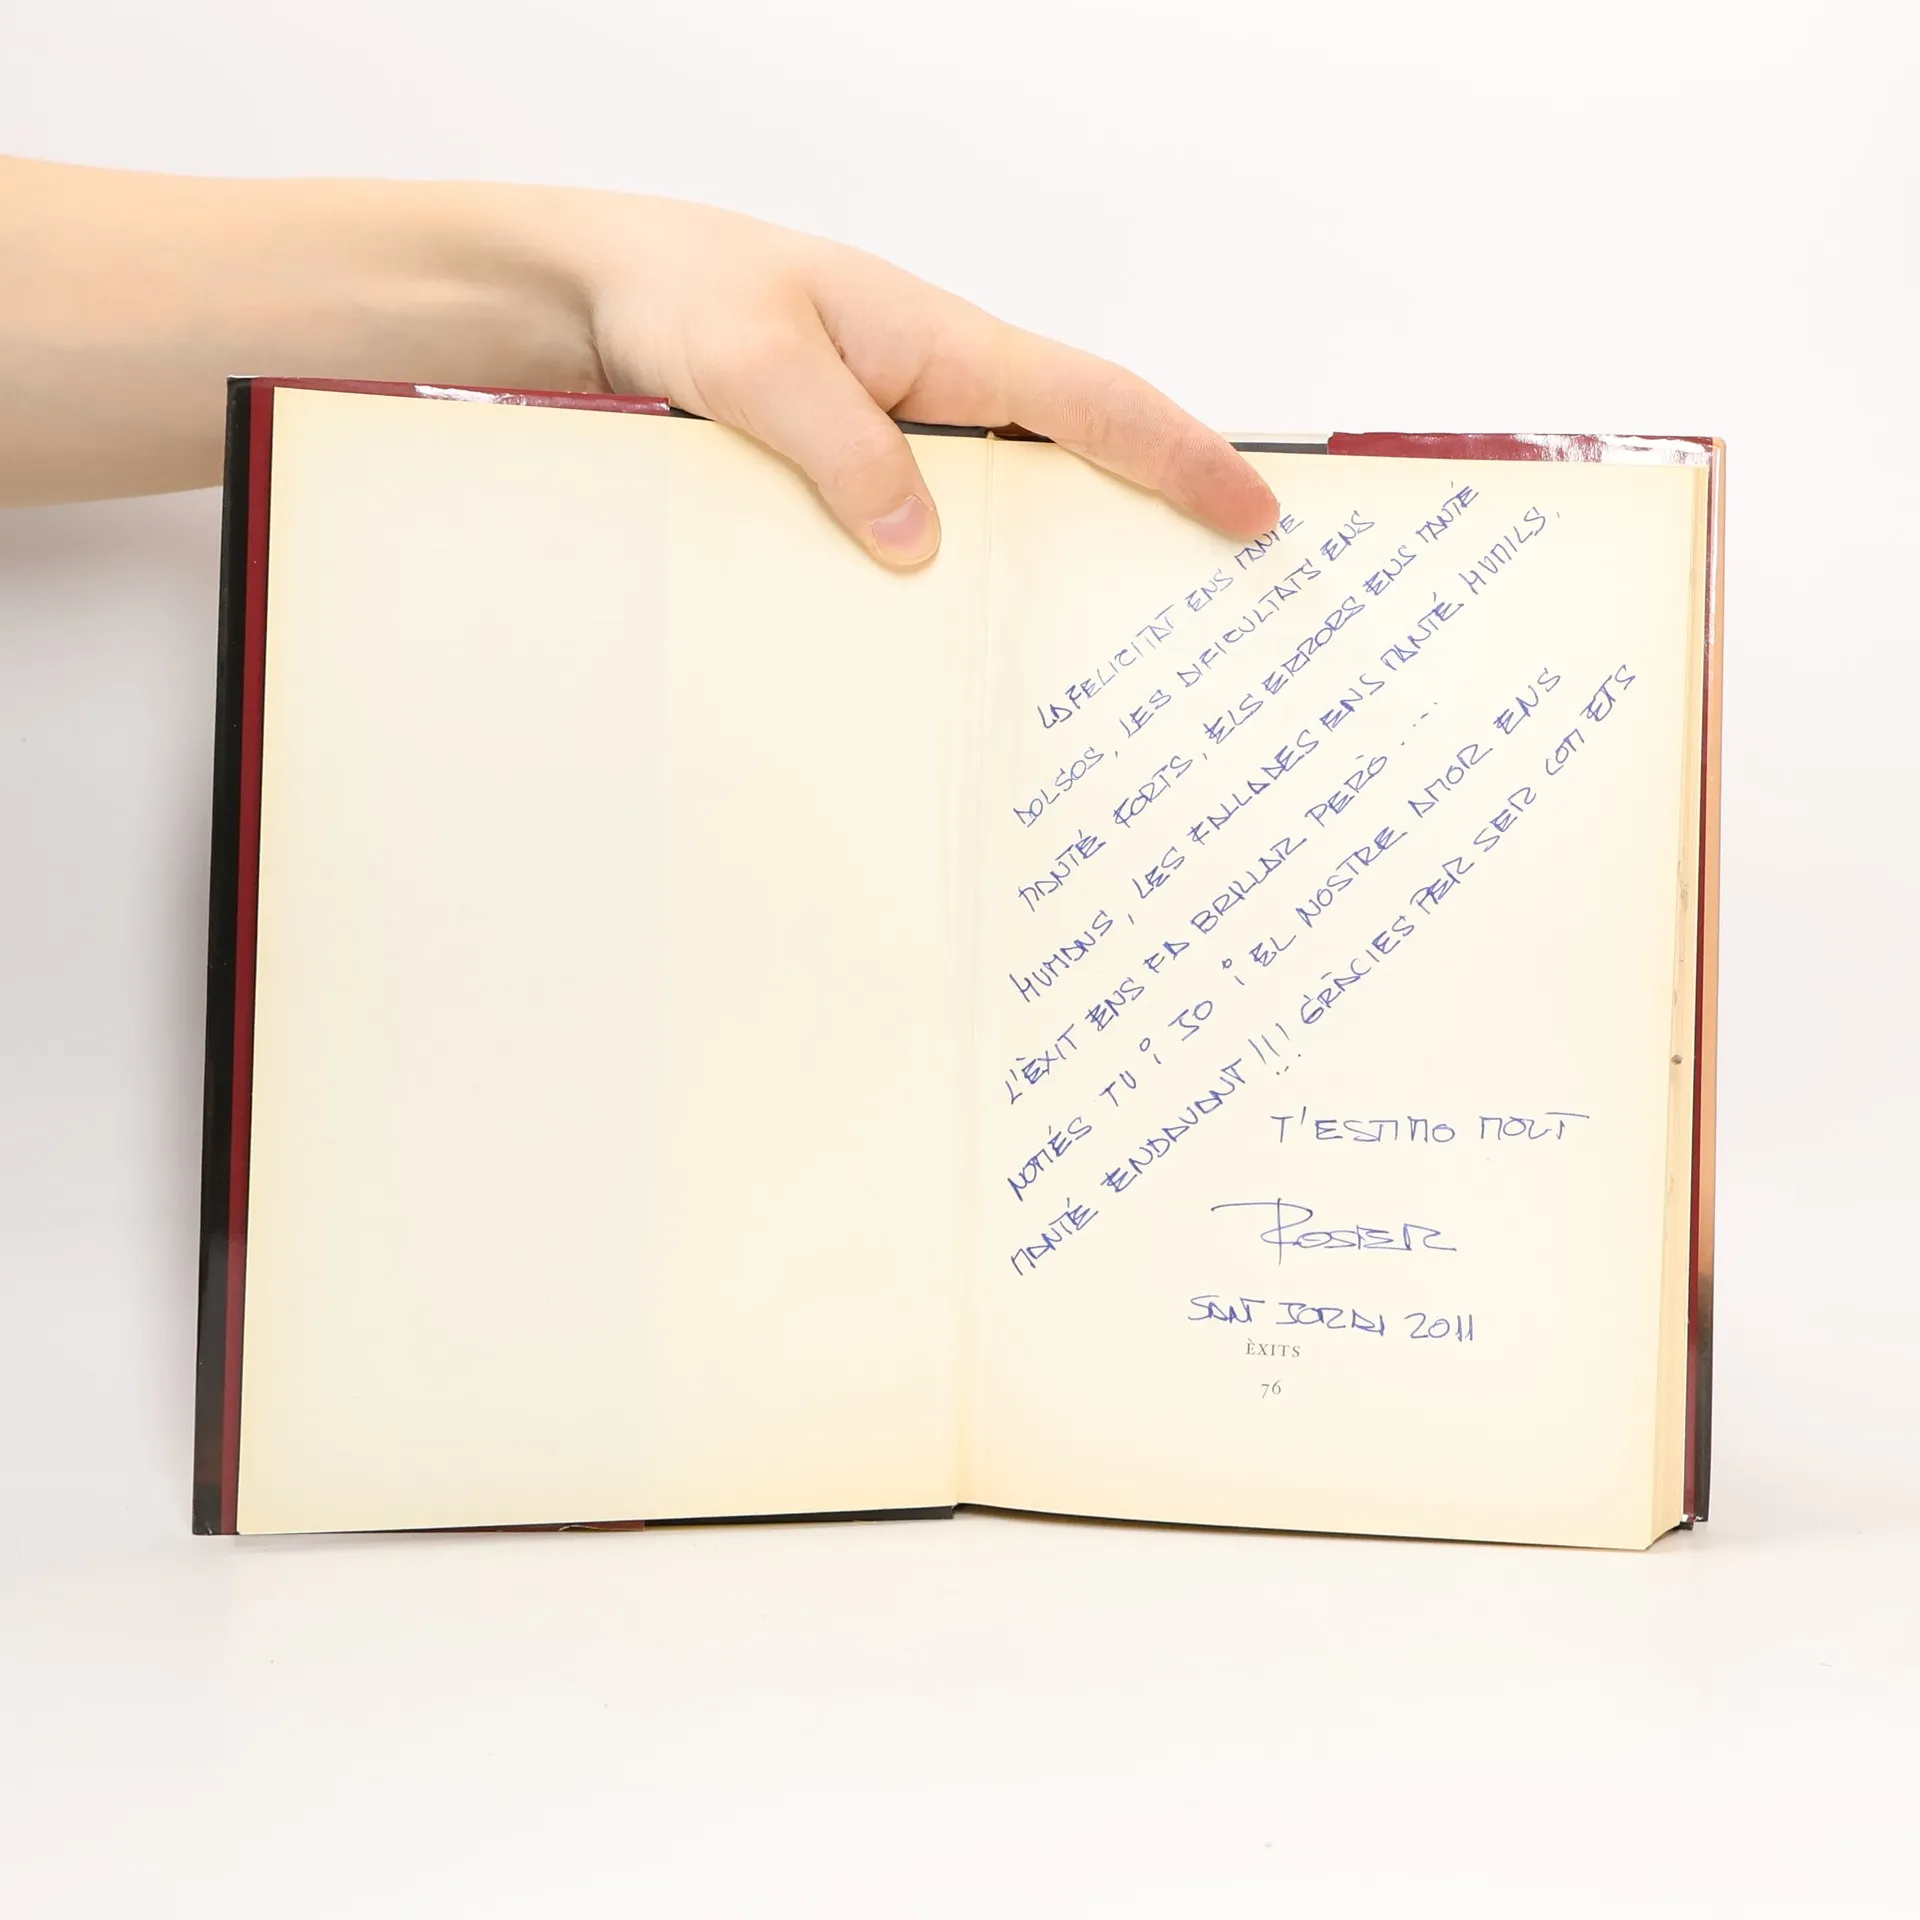 LA FELICITAT ENS MANTÉ
DOLSOS, LES DIFICULTATS ENS
MANTÉ FORTS, ELS ERRORS ENS MANTÉ
HUMANS, LES FALLADES ENS MANTÉ HUMILS.
L'ÈXIT ENS FA BRILLAR PERÒ....
NOMÉS TU i JO i EL NOSTRE AMOR ENS
MANTÉ ENDAVANT!!! GRÀCIES PER SER COM ETS
T'ESTIMO MOLT
ROSER
SANT JORDI 2011
ÈXITS
76